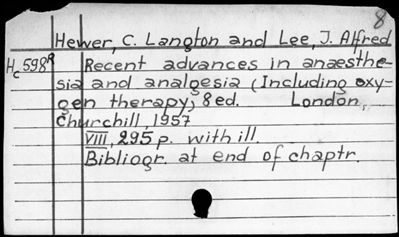 8
Hewer, C. Langton and Lee, J. Alfred
Hc598R Recent advances in anaesthe-
sia and analgesia (Including oxy-
gen therapy; 8 ed. London,
Churchill, 1957
VIII, 295 p. with ill.
Bibliogr. at end of chaptr.